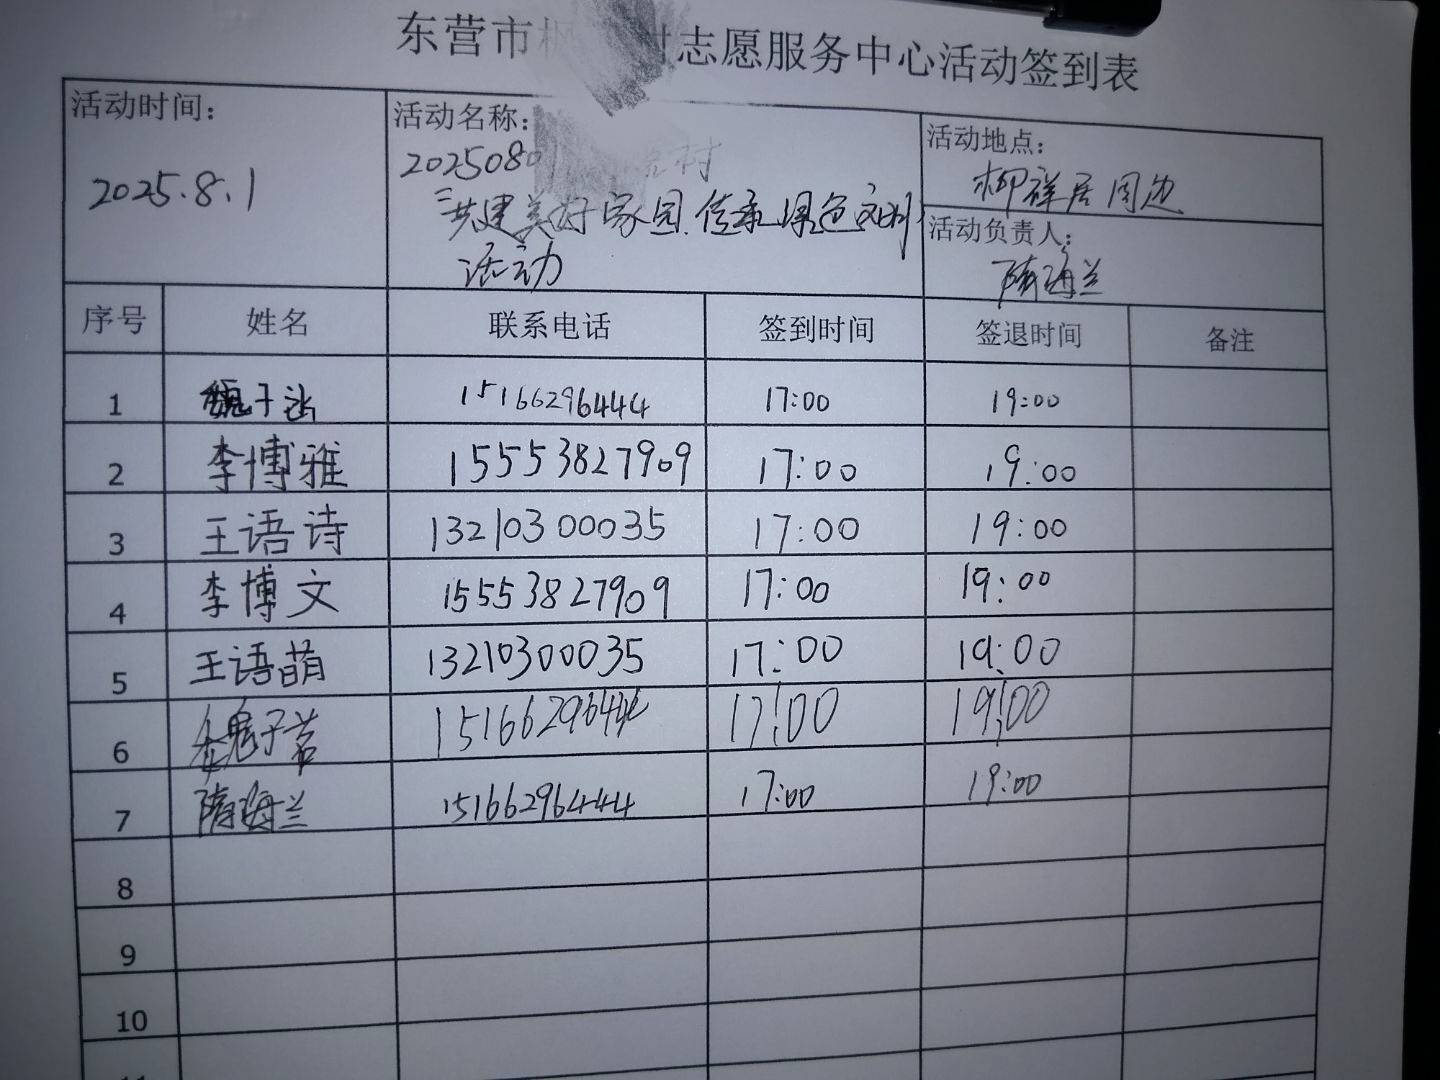 东营市枫 村志愿服务中心活动签到表
活动时间：
2025.8.1
活动名称：
2025080 村
共建美好家园、传承红色文明
活动
活动地点：
柳祥居周边
活动负责人：
隋海兰
序号 姓名 联系电话 签到时间 签退时间 备注
1 魏子涵 15166296444 17:00 19:00
2 李博雅 15553827909 17:00 19:00
3 王语诗 13210300035 17:00 19:00
4 李博文 15553827909 17:00 19:00
5 王语萌 13210300035 17:00 19:00
6 魏子茗 15166296444 17:00 19:00
7 隋海兰 15166296444 17:00 19:00
8
9
10
11